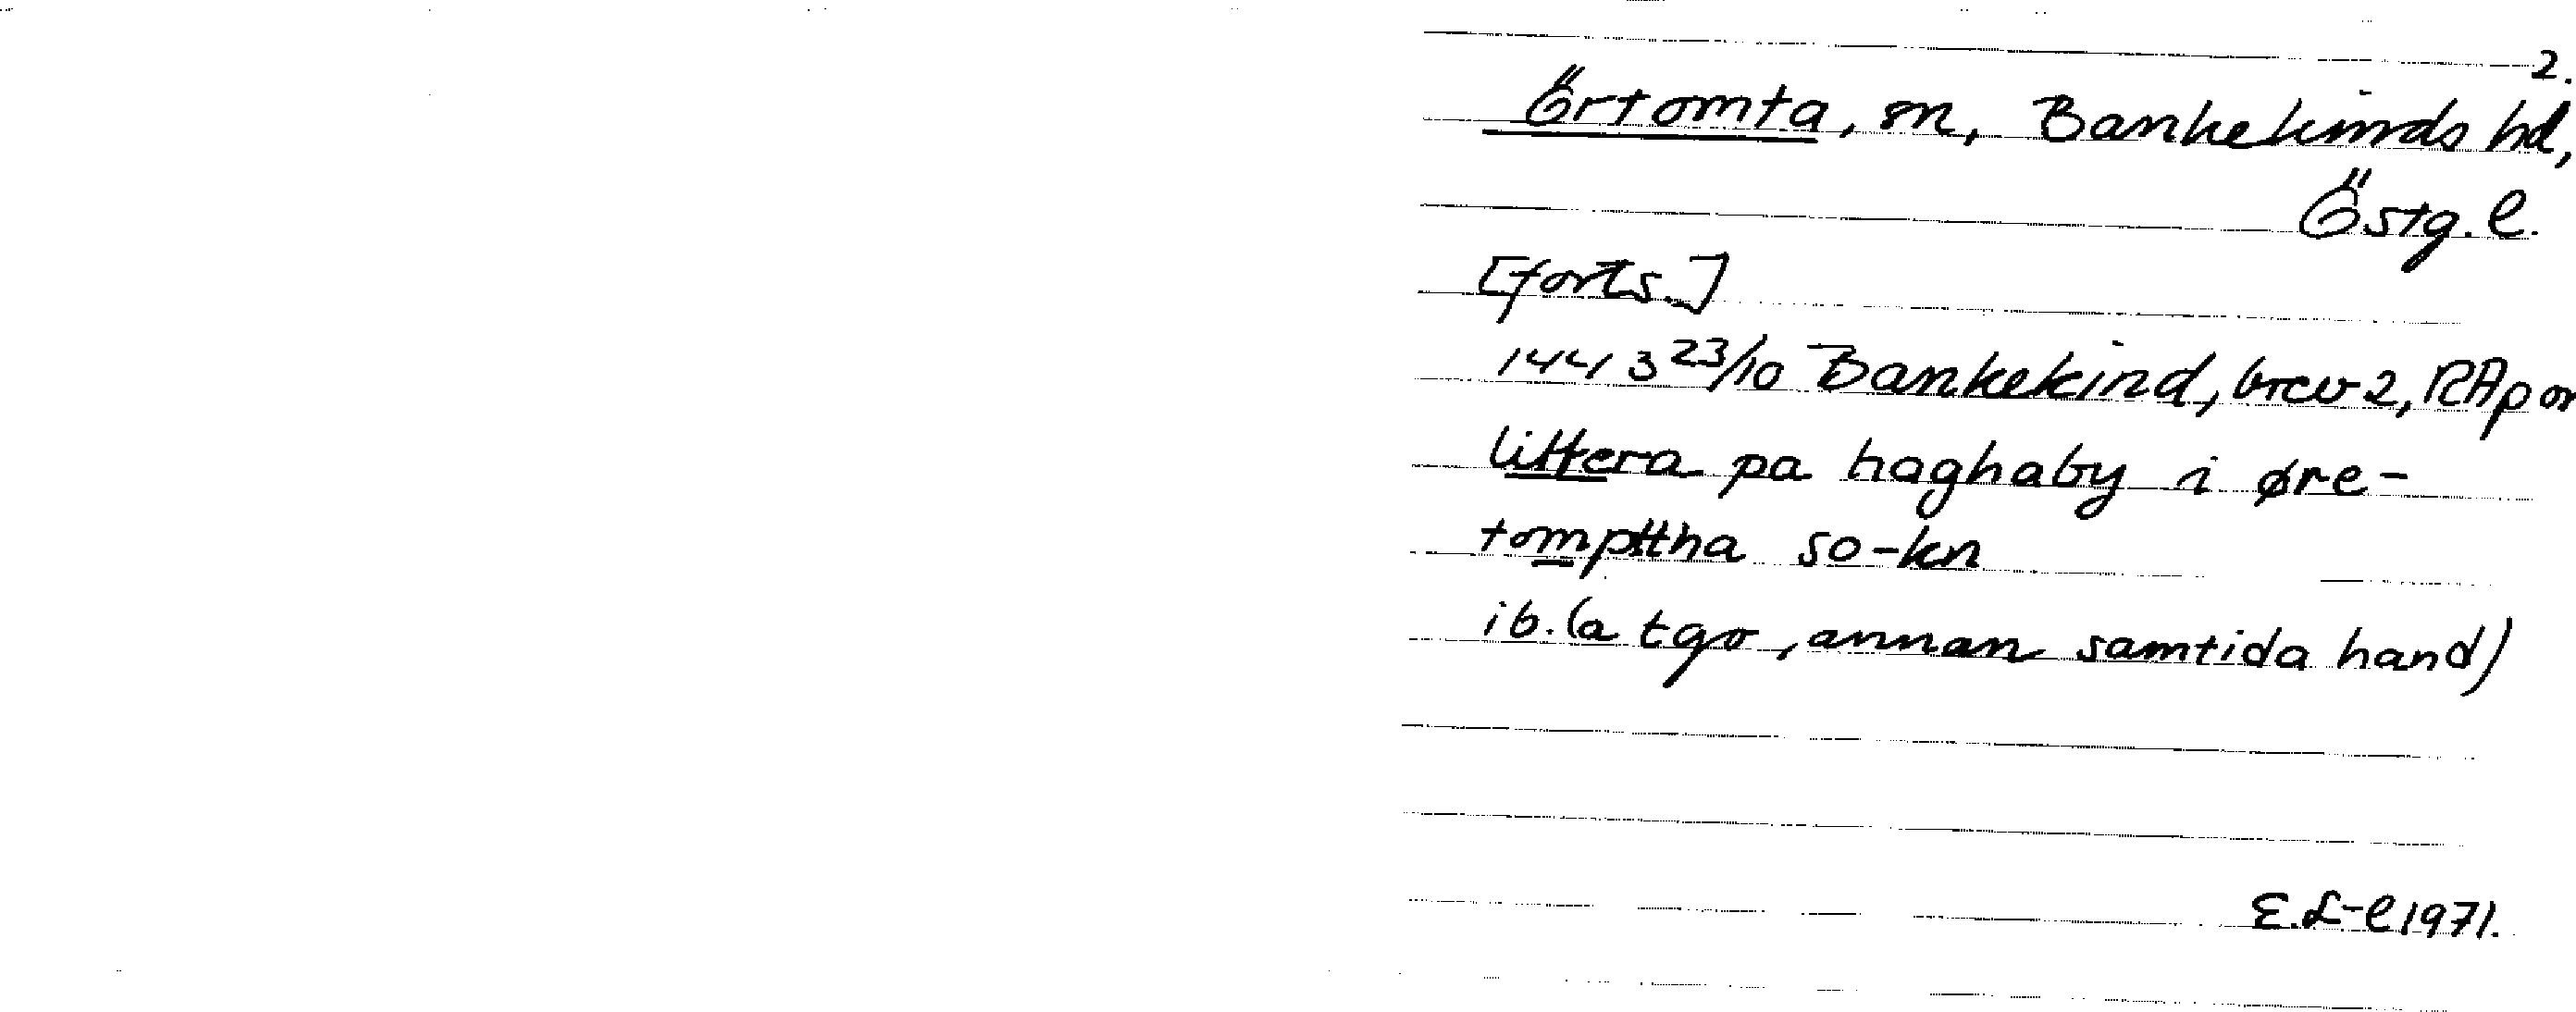 2.
Örtomta, sn, Bankekinds hd,
Östg. l.
[forts.]
1443 23/10 Bankekind, brev 2, RAp or
littera pa haghaby i øre-
tompttha so-kn
ib. (a tgo, annan samtida hand)
E.L-l 1971.